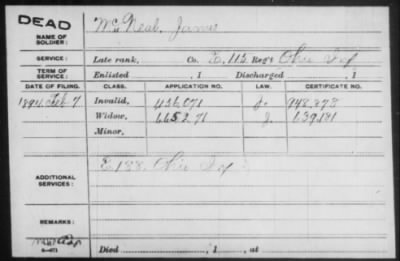 DEAD
NAME OF SOLDIER: McNeal, James
SERVICE: Late rank, Co. E, 115 Reg't Ohio Inf
TERM OF SERVICE: Enlisted , 1 Discharged , 1
DATE OF FILING. CLASS. APPLICATION NO. LAW. CERTIFICATE NO.
1894 Feb 7 Invalid, 456,071 J. 948,878
Widow, 665271 J. 639,181
Minor,
ADDITIONAL SERVICES: E 188. Ohio Inf
REMARKS:
Died , 1 , at